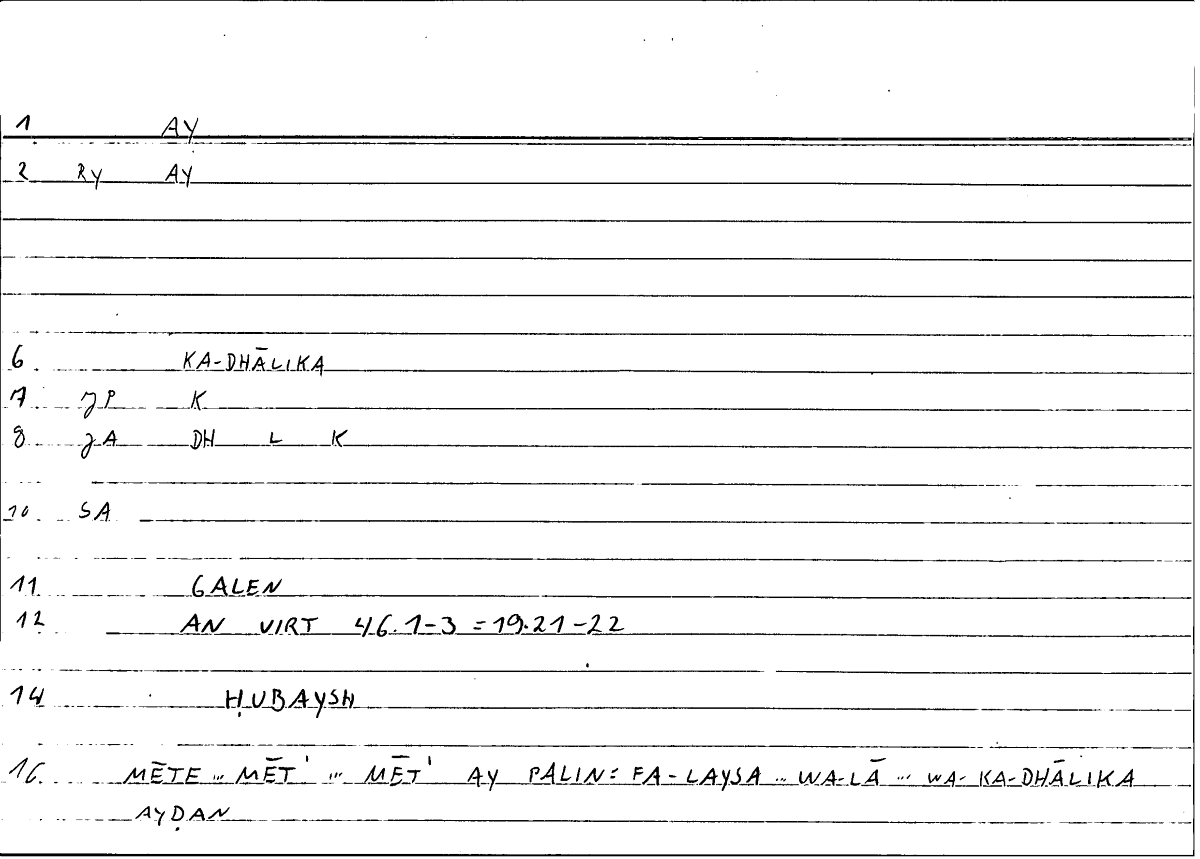 1 AY
2 RY AY
6 KA-DHĀLIKA
7 JP K
8 JA DH L K
10 SA
11 GALEN
12 AN VIRT 46.1-3 = 19.21-22
14 ḤUBAYSH
16 MĒTE ... MĒT' ... MĒT' AY PALIN = FA-LAYSA ... WA-LĀ ... WA-KA-DHĀLIKA
AYḌAN